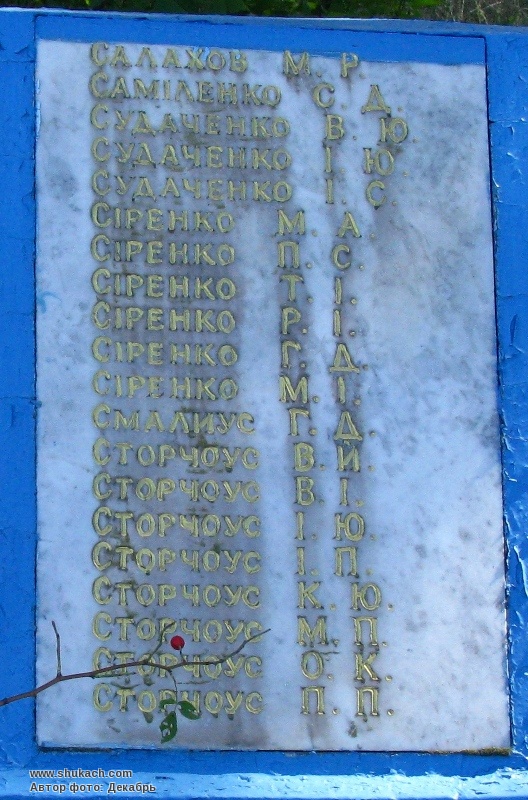 САЛАХОВ М. Р.
САМІЛЕНКО С. Д.
СУДАЧЕНКО В. Ю.
СУДАЧЕНКО І. Ю.
СУДАЧЕНКО І. С.
СІРЕНКО М. А.
СІРЕНКО П. С.
СІРЕНКО Т. І.
СІРЕНКО Р. І.
СІРЕНКО Г. Д.
СІРЕНКО М. І.
СМАЛИУС Г. Д.
СТОРЧОУС В. И.
СТОРЧОУС В. І.
СТОРЧОУС І. Ю.
СТОРЧОУС І. П.
СТОРЧОУС К. Ю.
СТОРЧОУС М. П.
СТОРЧОУС О. К.
СТОРЧОУС П. П.
www.shukach.com
Автор фото: Декабрь